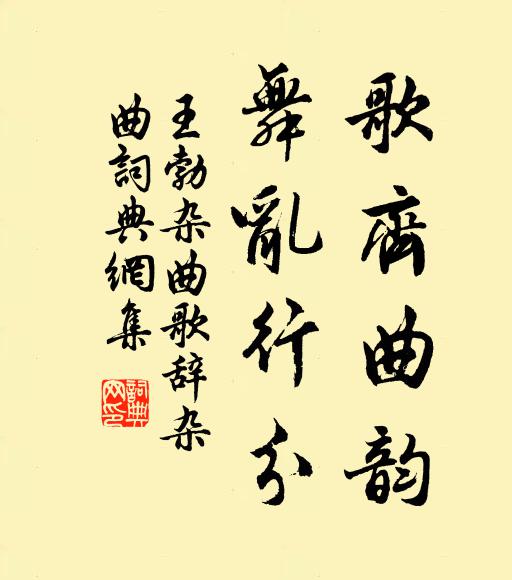 歌齊曲韵
舞亂行分
王勃杂曲歌辞杂
曲詞典網集
詞典
网印